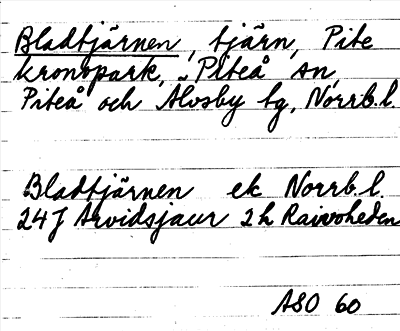 Bladtjärnen, tjärn, Pite
kronopark, Piteå sn,
Piteå och Älvsby tg, Norrb.l.
Bladtjärnen ek Norrb.l.
24J Arvidsjaur 2h Raivoheden
ASO 60